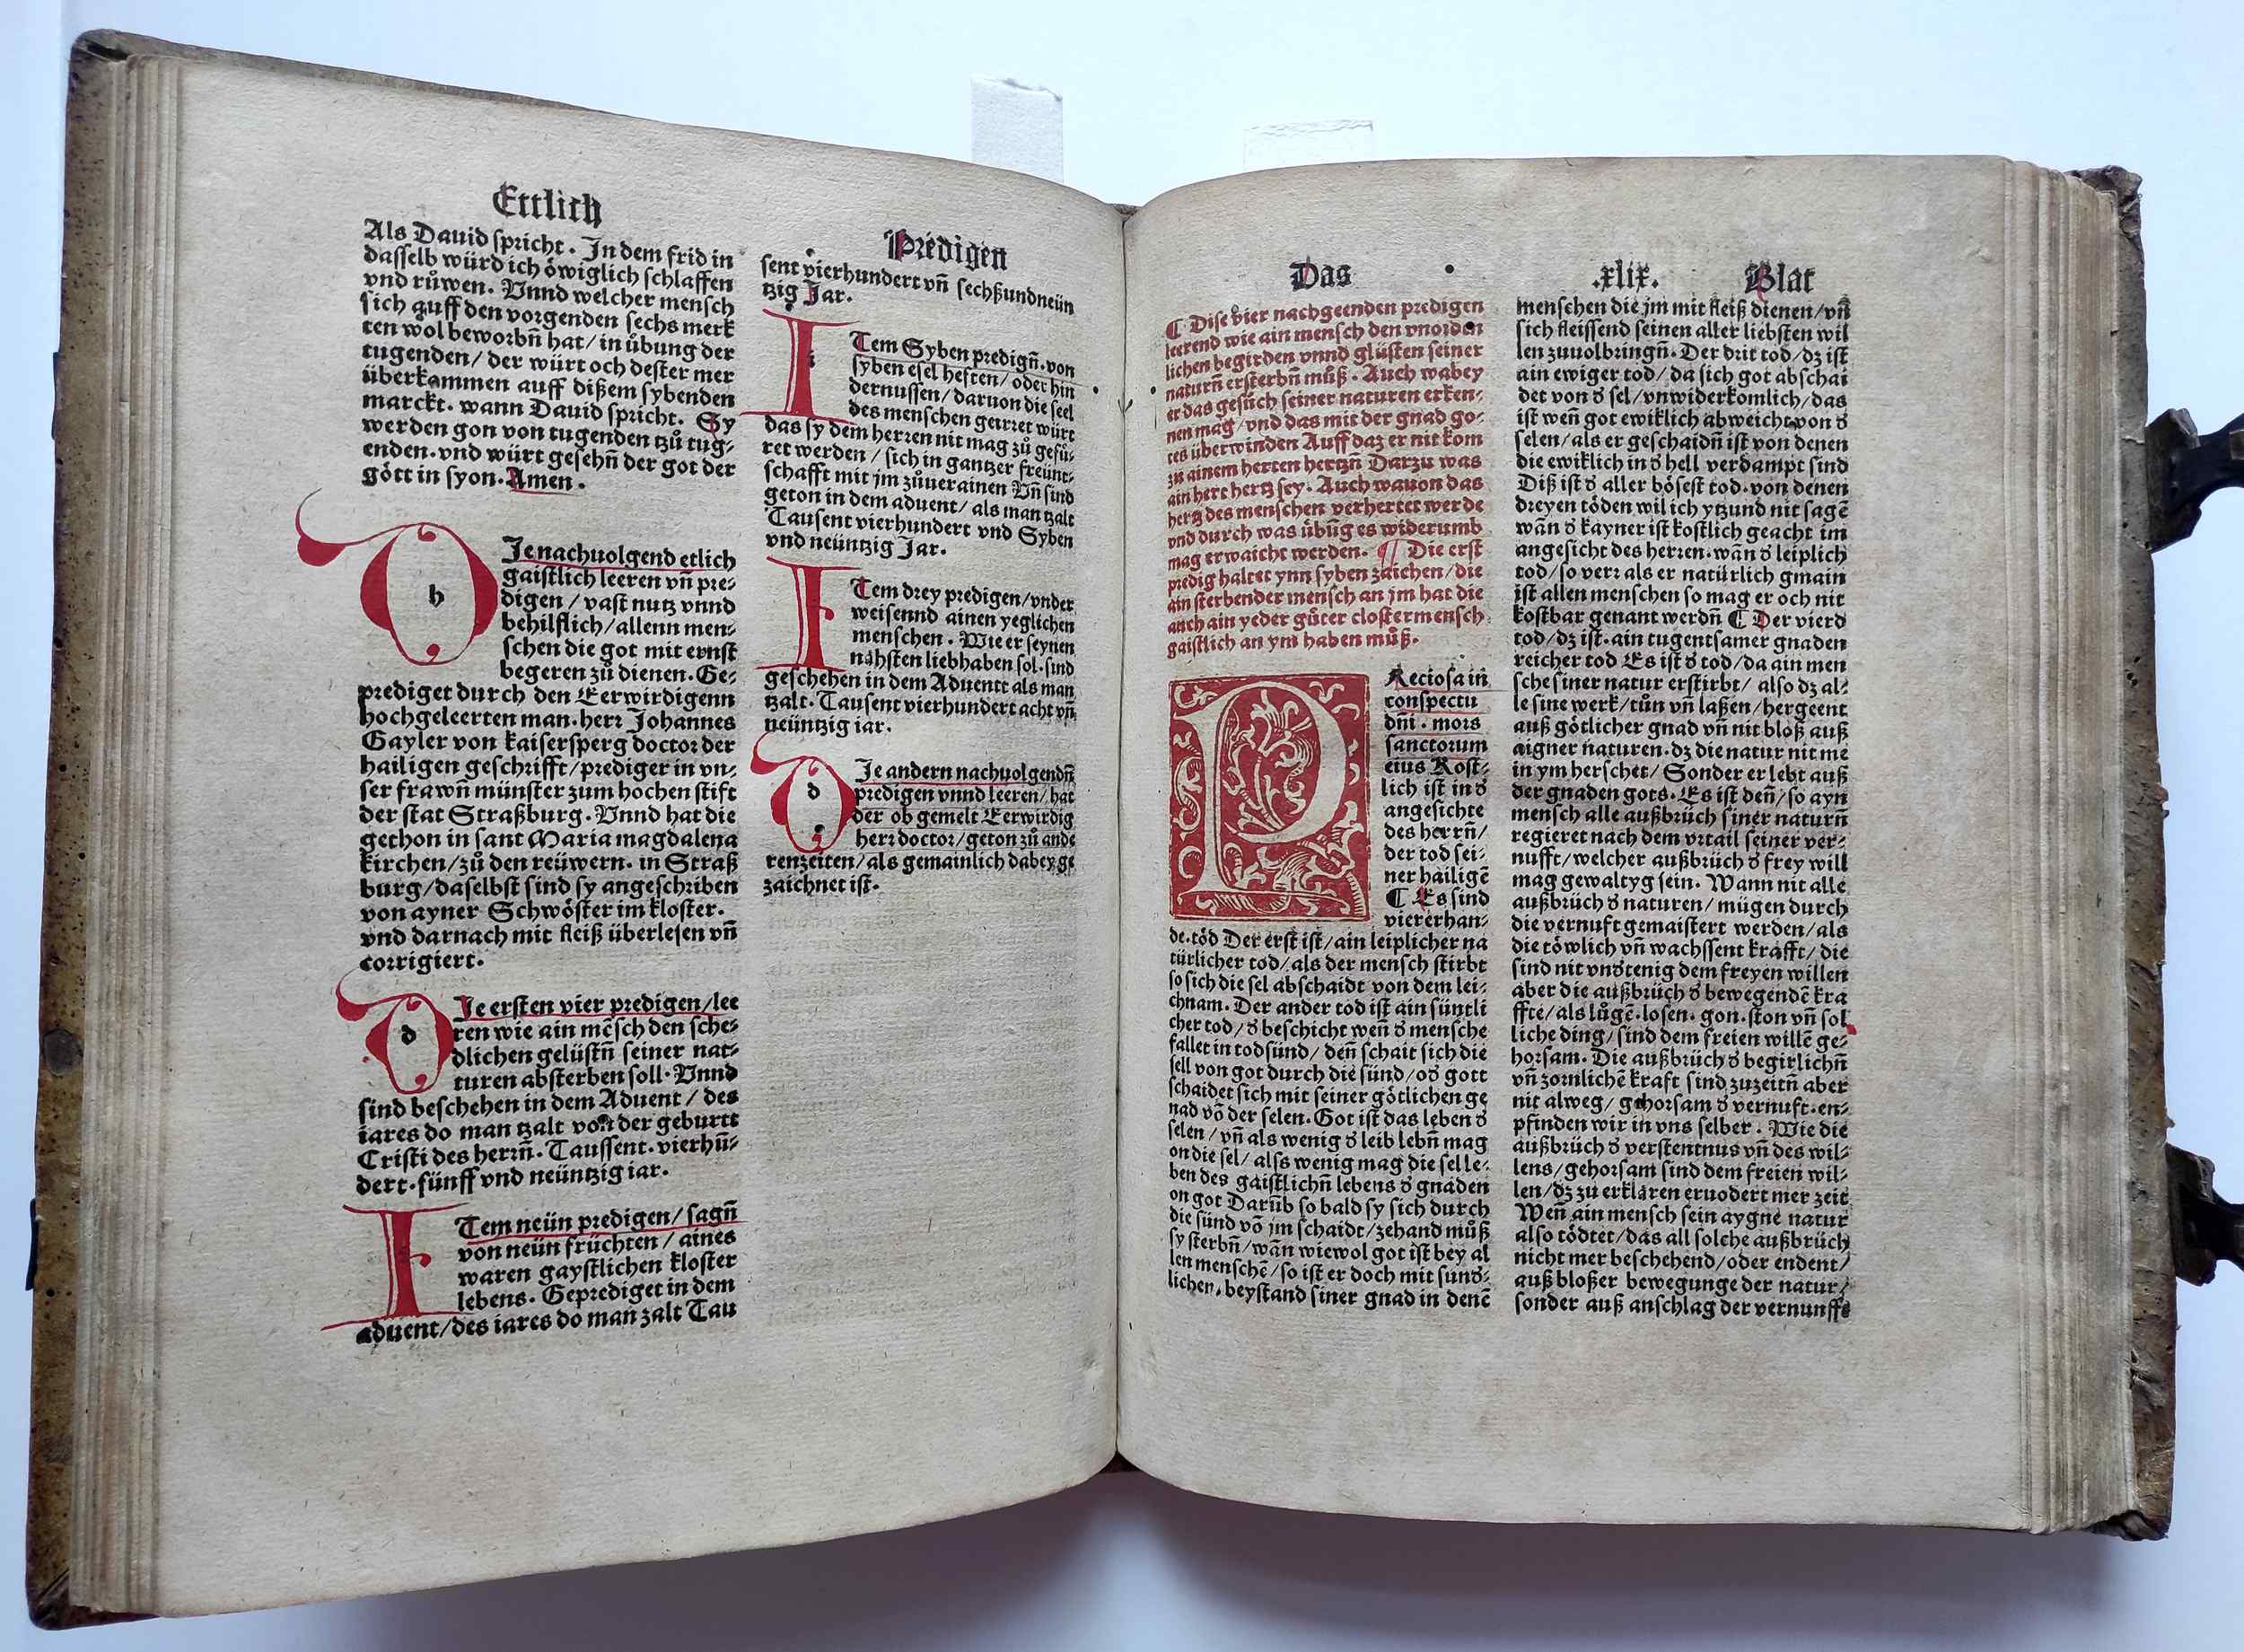 Ettlich
Als Dauid spricht. In dem frid in
dasselb würd ich öwiglich schlaffen
vnd růwen. Vnnd welcher mensch
sich auff den vorgenden sechs merk
ten wol beworbn̄ hat/ in übung der
tugenden/ der würt och dester mer
überkammen auff dißem sybenden
marckt. wann Dauid spricht. Sy
werden gon von tugenden tzů tug⸗
enden. vnd würt gesehn̄ der got der
gött in syon. Amen.
h
Ie nachuolgend etlich
gaistlich leeren vn̄ pre⸗
digen / vast nutz vnnd
behilflich/ allenn men⸗
schen die got mit ernst
begeren zů dienen. Ge⸗
prediget durch den Eerwirdigenn
hochgeleerten man. herr Johannes
Gayler von kaisersperg doctor der
hailigen geschrifft/ prediger in vn⸗
ser frawn̄ münster zum hochen stift
der stat Straßburg. Vnnd hat die
gethon in sant Maria magdalena
kirchen/ zů den reüwern. in Straß
burg/ daselbst sind sy angeschriben
von ayner Schwöster im kloster.
vnd darnach mit fleiß überlesen vn̄
corrigiert.
d
Ie ersten vier predigen/ lee
ren wie ain mēsch den sche⸗
dlichen gelüstn̄ seiner nat⸗
turen absterben soll. Vnnd
sind beschehen in dem Aduent / des
iares do man tzalt von der geburtt
Cristi des herrn̄. Taussent. vierhū⸗
dert. fünff vnd neüntzig iar.
I
Tem neün predigen/ sagn̄
von neün früchten / aines
waren gaystlichen kloster
lebens. Geprediget in dem
aduent/ des iares do man zalt Tau
Predigen
sent vierhundert vn̄ sechßundneün
tzig Jar.
I
Tem Syben predign̄. von
syben esel heften/ oder hin
dernussen/ daruon die seel
des menschen geirret würt
das sy dem herren nit mag zů gefü⸗
ret werden / sich in gantzer freünt⸗
schafft mit jm zůuerainen Vn̄ sind
geton in dem aduent/ als man tzalt
Tausent vierhundert vnd Syben
vnd neüntzig Jar.
I
Tem drey predigen/ vnder
weisennd ainen yeglichen
menschen. Wie er seynen
nähsten liebhaben sol. sind
geschehen in dem Aduentt als man
tzalt. Tausent vierhundert acht vn̄
neüntzig iar.
d
Ie andern nachuolgendn̄
predigen vnnd leeren/ hat
der ob gemelt Eerwirdig
herr doctor/ geton zů ande
renzeiten/ als gemainlich dabey ge
zaichnet ist.
Das .xlix. Blat
¶ Dise vier nachgeenden predigen
leerend wie ain mensch den vnorden
lichen begirden vnnd glüsten seiner
naturn̄ ersterbn̄ můß. Auch wabey
er das gesůch seiner naturen erken⸗
nen mag / vnd das mit der gnad go⸗
tes überwinden Auff daz er nit kom
zu ainem herten hertzn̄ Darzu was
ain hert hertz sey. Auch wauon das
hertz des menschen verhertet werde
vnd durch was übūg es widerumb
mag erwaicht werden. ¶ Die erst
predig haltet ynn syben zaichen/ die
ain sterbender mensch an jm hat die
auch ain yeder gůter clostermensch
gaistlich an ym haben můß.
P
Reciosa in
conspectu
dn̄i. mors
sanctorum
eius Kost⸗
lich ist in ď
angesichte
des herrn̄/
der tod sei⸗
ner hailigē
¶ Es sind
viererhan⸗
de. töd Der erst ist/ ain leiplicher na
türlicher tod/ als der mensch stirbt
so sich die sel abschaidt von dem lei⸗
chnam. Der ander tod ist ain süntli
cher tod/ ď beschicht wen̄ ď mensche
fallet in todsünd/ den̄ schait sich die
sell von got durch die sünd/ oď gott
schaidet sich mit seiner götlichen ge
nad vō der selen. Got ist das leben ď
selen / vn̄ als wenig ď leib lebn̄ mag
on die sel/ alss wenig mag die sel le⸗
ben des gaistlichn̄ lebens ď gnaden
on got Darūb so bald sy sich durch
die sünd vō jm schaidt/ zehand můß
sy sterbn̄/ wān wiewol got ist bey al
len menschē/ so ist er doch mit sunď⸗
lichen. beystand siner gnad in denē
menschen die jm mit fleiß dienen/ vn̄
sich fleissend seinen aller liebsten wil
len zuuolbringn̄. Der drit tod/ dz ist
ain ewiger tod/ da sich got abschai
det von ď sel/ vnwiderkomlich/ das
ist wen̄ got ewiklich abweicht von ď
selen/ als er geschaidn̄ ist von denen
die ewiklich in ď hell verdampt sind
Diß ist ď aller bösest tod. von denen
dreyen töden wil ich ytzund nit sagē
wān ď kayner ist kostlich geacht im
angesicht des herren. wān ď leiplich
tod/ so verr als er natürlich gmain
ist allen menschen so mag er och nit
kostbar genant werdn̄ ¶ Der vierd
tod/ dz ist. ain tugentsamer gnaden
reicher tod Es ist ď tod/ da ain men
sche siner natur erstirbt/ also dz al⸗
le sine werk/ tůn vn̄ laßen/ hergeent
auß götlicher gnad vn̄ nit bloß auß
aigner naturen. dz die natur nit me
in ym herschet/ Sonder er lebt auß
der gnaden gots. Es ist den̄/ so ayn
mensch alle außbrüch siner naturn̄
regieret nach dem vrtail seiner ver⸗
nufft/ welcher außbrüch ď frey will
mag gewaltyg sein. Wann nit alle
außbrüch ď naturen/ mügen durch
die vernuft gemaistert werden/ als
die töwlich vn̄ wachssent krafft/ die
sind nit vnďtenig dem freyen willen
aber die außbrüch ď bewegendē kra
ffte/ als lůgē. losen. gon. ston vn̄ sol
liche ding/ sind dem freien willē ge⸗
horsam. Die außbrüch ď begirlichn̄
vn̄ zornlichē kraft sind zuzeitn̄ aber
nit alweg/ gehorsam ď vernuft. en⸗
pfinden wir in vns selber. Wie die
außbrüch ď verstentnus vn̄ des wil⸗
lens/ gehorsam sind dem freien wil⸗
len/ dz zu erklären eruodert mer zeit
Wen̄ ain mensch sein aygne natur
also tödtet/ das all solche außbrüch
nicht mer beschehend/ oder endent/
auß bloßer bewegunge der natur/
sonder auß anschlag der vernunfft